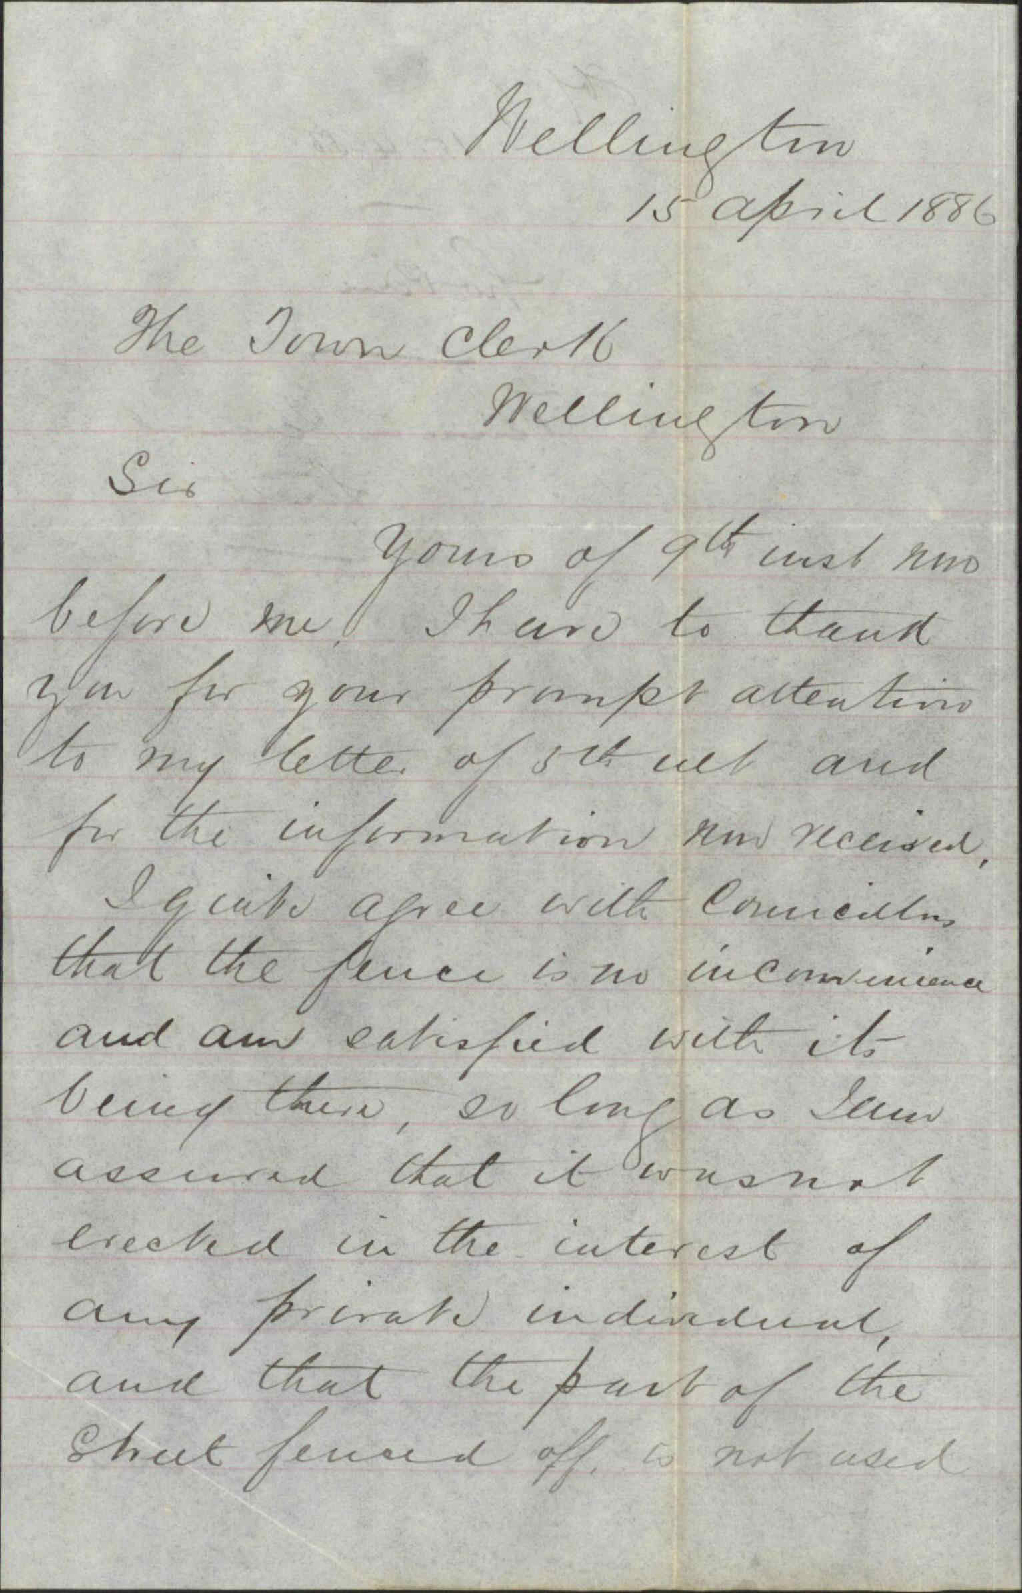 Wellington
15 April 1886
The Town Clerk
Wellington
Sir
Yours of 9th inst now
before me. I have to thank
you for your prompt attention
to my letter of 5th ult and
for the information now received,
I quite agree with Councillors
that the fence is no inconvenience
and am satisfied with its
being there, so long as I am
assured that it was not
erected in the interest of
any private individual,
and that the part of the
Street fenced off. is not used